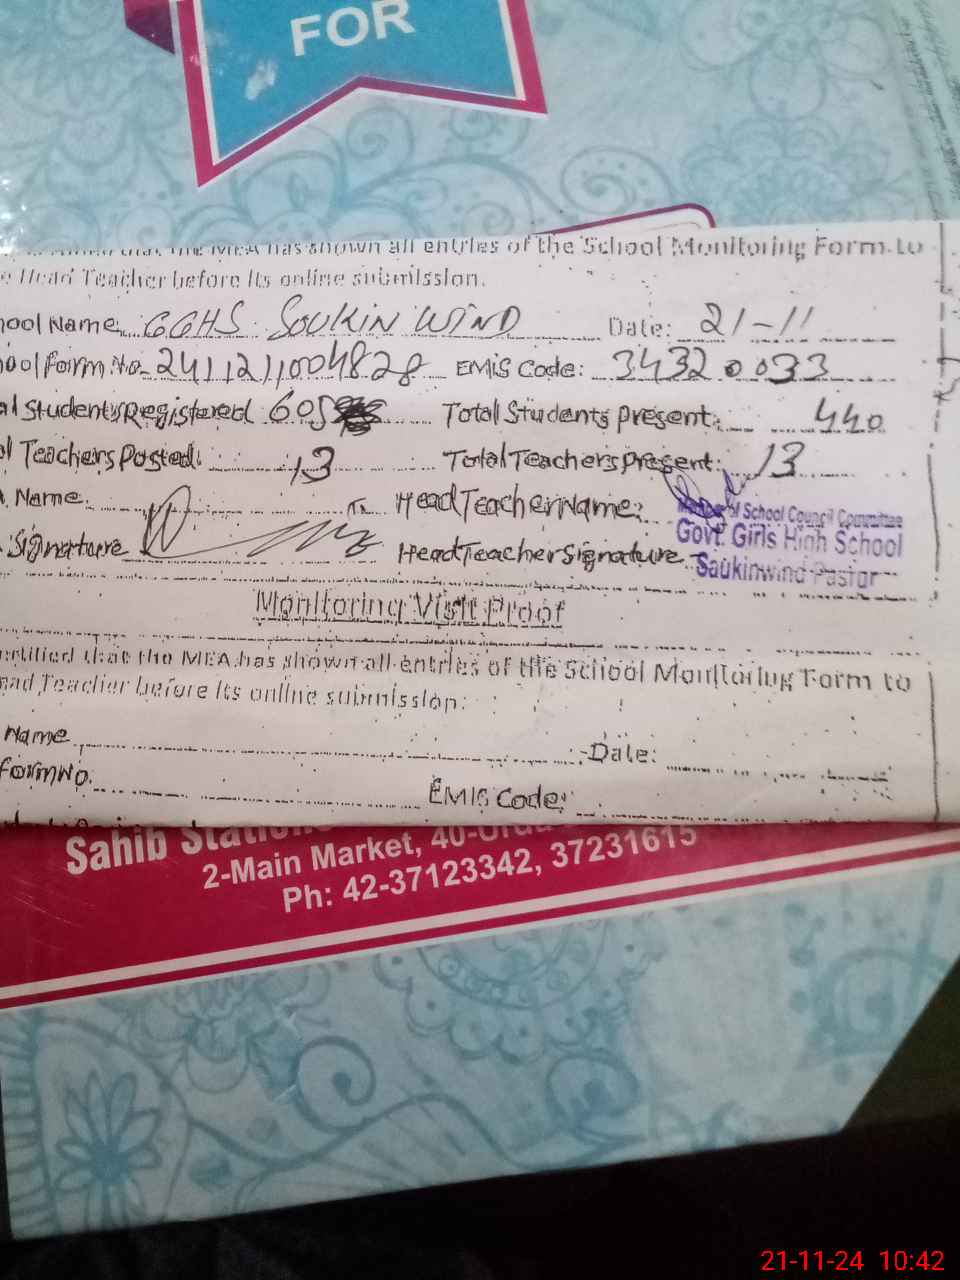 FOR
that the MEA has shown all entries of the School Monitoring Form to
e Head Teacher before its online submission.
hool Name GGHS SOUKIN WIND Date: 21-11
ool Form No. 2411211004828 EMIS Code: 34320033
al Students Registered 605 Total Students present: 440
ol Teachers Posted: 13 Total Teachers Present: 13
Name: Head Teacher Name:
Signature Head Teacher Signature
School Council Committee
Govt. Girls High School
Saukinwind Pasrur
Monitoring Visit Proof
ertified that the MEA has shown all entries of the School Monitoring Form to
ead Teacher before its online submission:
Name Date:
Form No. EMIS Code:
Sahib
2-Main Market, 40-
Ph: 42-37123342, 37231615
21-11-24 10:42